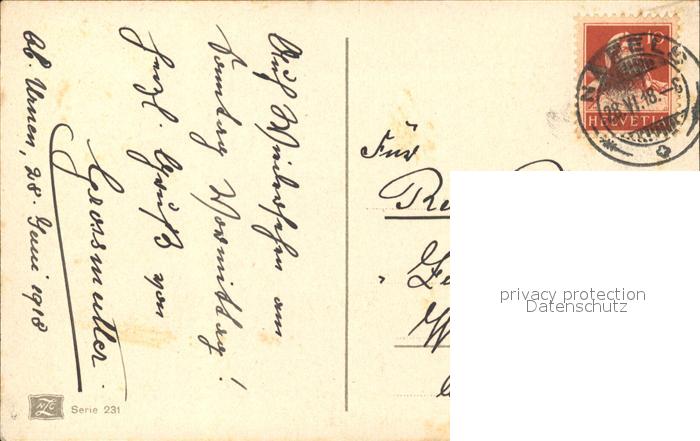 Auf Wiedersehen am
Sonntag Vormittag!
Herzl. Gruß von
Grossmutter.
Ob. Urnen, 28. Juni 1918
NZG
Serie 231
10
HELVETIA
NÄFELS
28.VI.18.-3
Für
privacy protection
Datenschutz